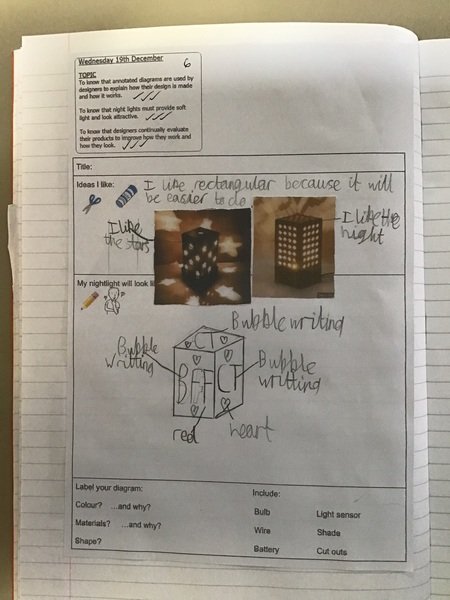 Wednesday 19th December
6
TOPIC
To know that annotated diagrams are used by
designers to explain how their design is made
and how it works.
To know that night lights must provide soft
light and look attractive.
To know that designers continually evaluate
their products to improve how they work and
how they look.
Title:
Ideas I like:
I like rectangular because it will
be easier to do
I like
the stars
I like the
hight
My nightlight will look li
Bubble writing
Bubble
writting
Bubble
writting
CT
BFF
CT
red
heart
Label your diagram:
Colour? ...and why?
Materials? ...and why?
Shape?
Include:
Bulb Light sensor
Wire Shade
Battery Cut outs